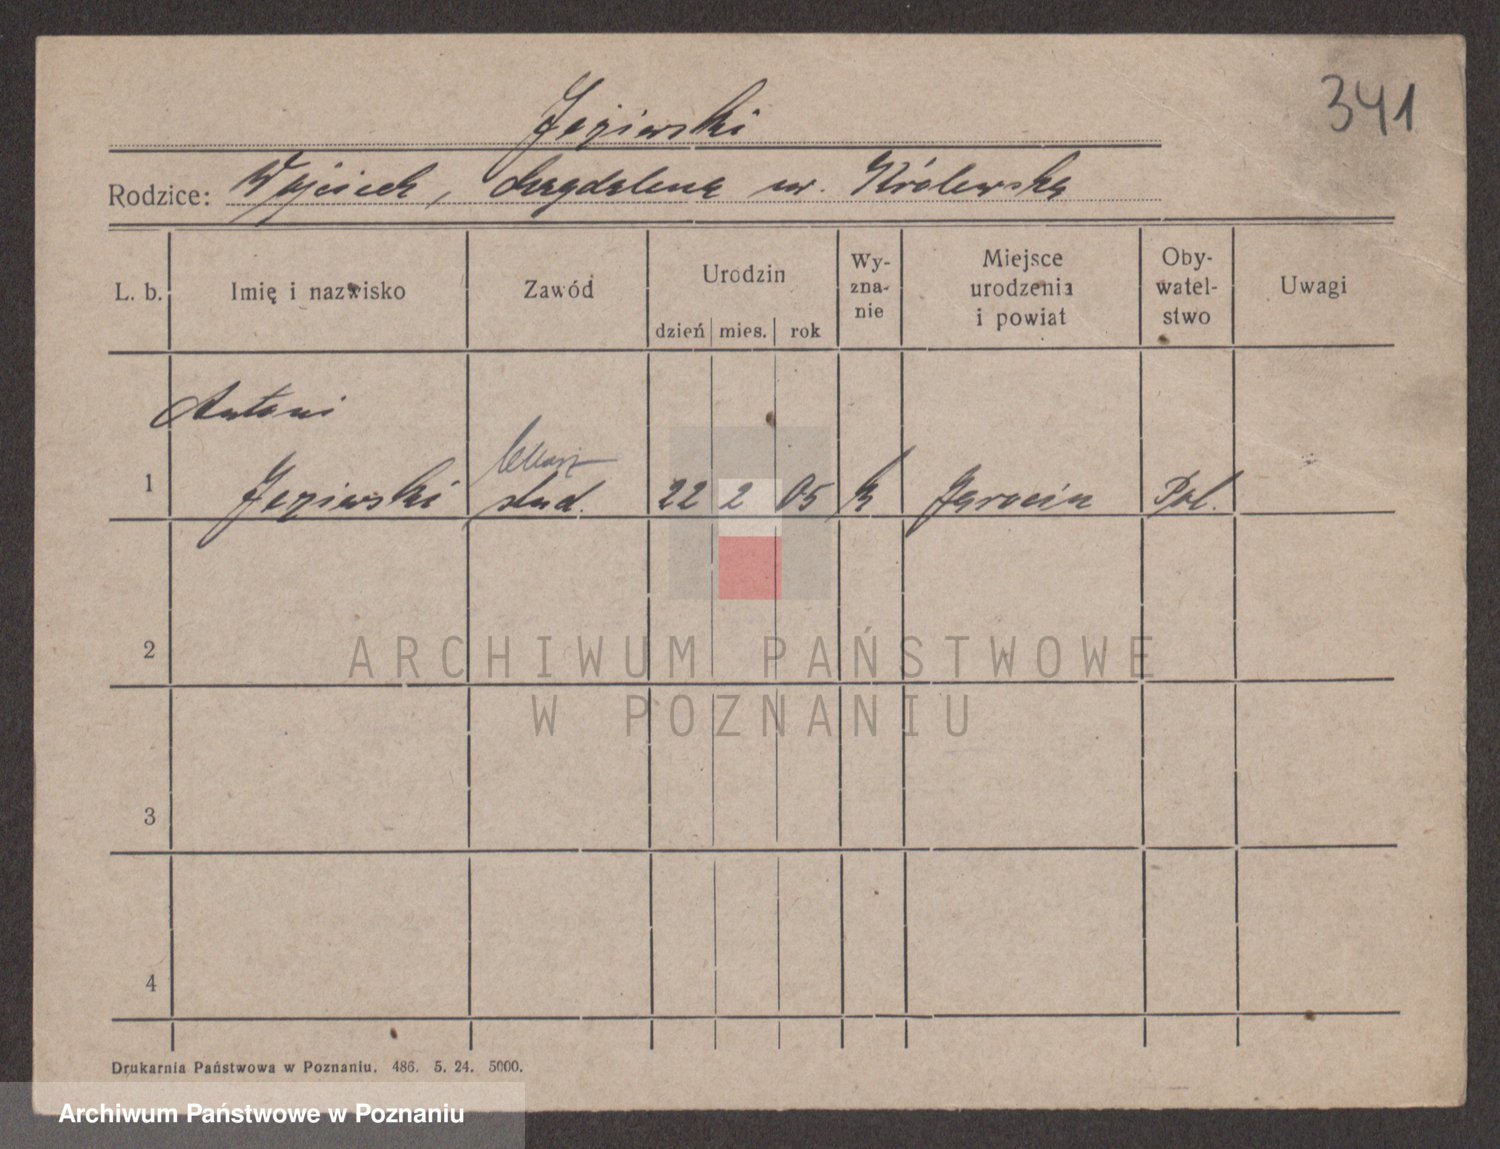 341
Jezierski
Rodzice: Wojciech, Magdalena ur. Królewska
L. b. Imię i nazwisko Zawód Urodzin dzień mies. rok Wy-zna-nie Miejsce urodzenia i powiat Oby-watel-stwo Uwagi
Antoni
lekarz
1 Jezierski stud. 22 2 05 k Jarocin Pol.
2
ARCHIWUM PAŃSTWOWE
W POZNANIU
3
4
Drukarnia Państwowa w Poznaniu. 486. 5. 24. 5000.
Archiwum Państwowe w Poznaniu